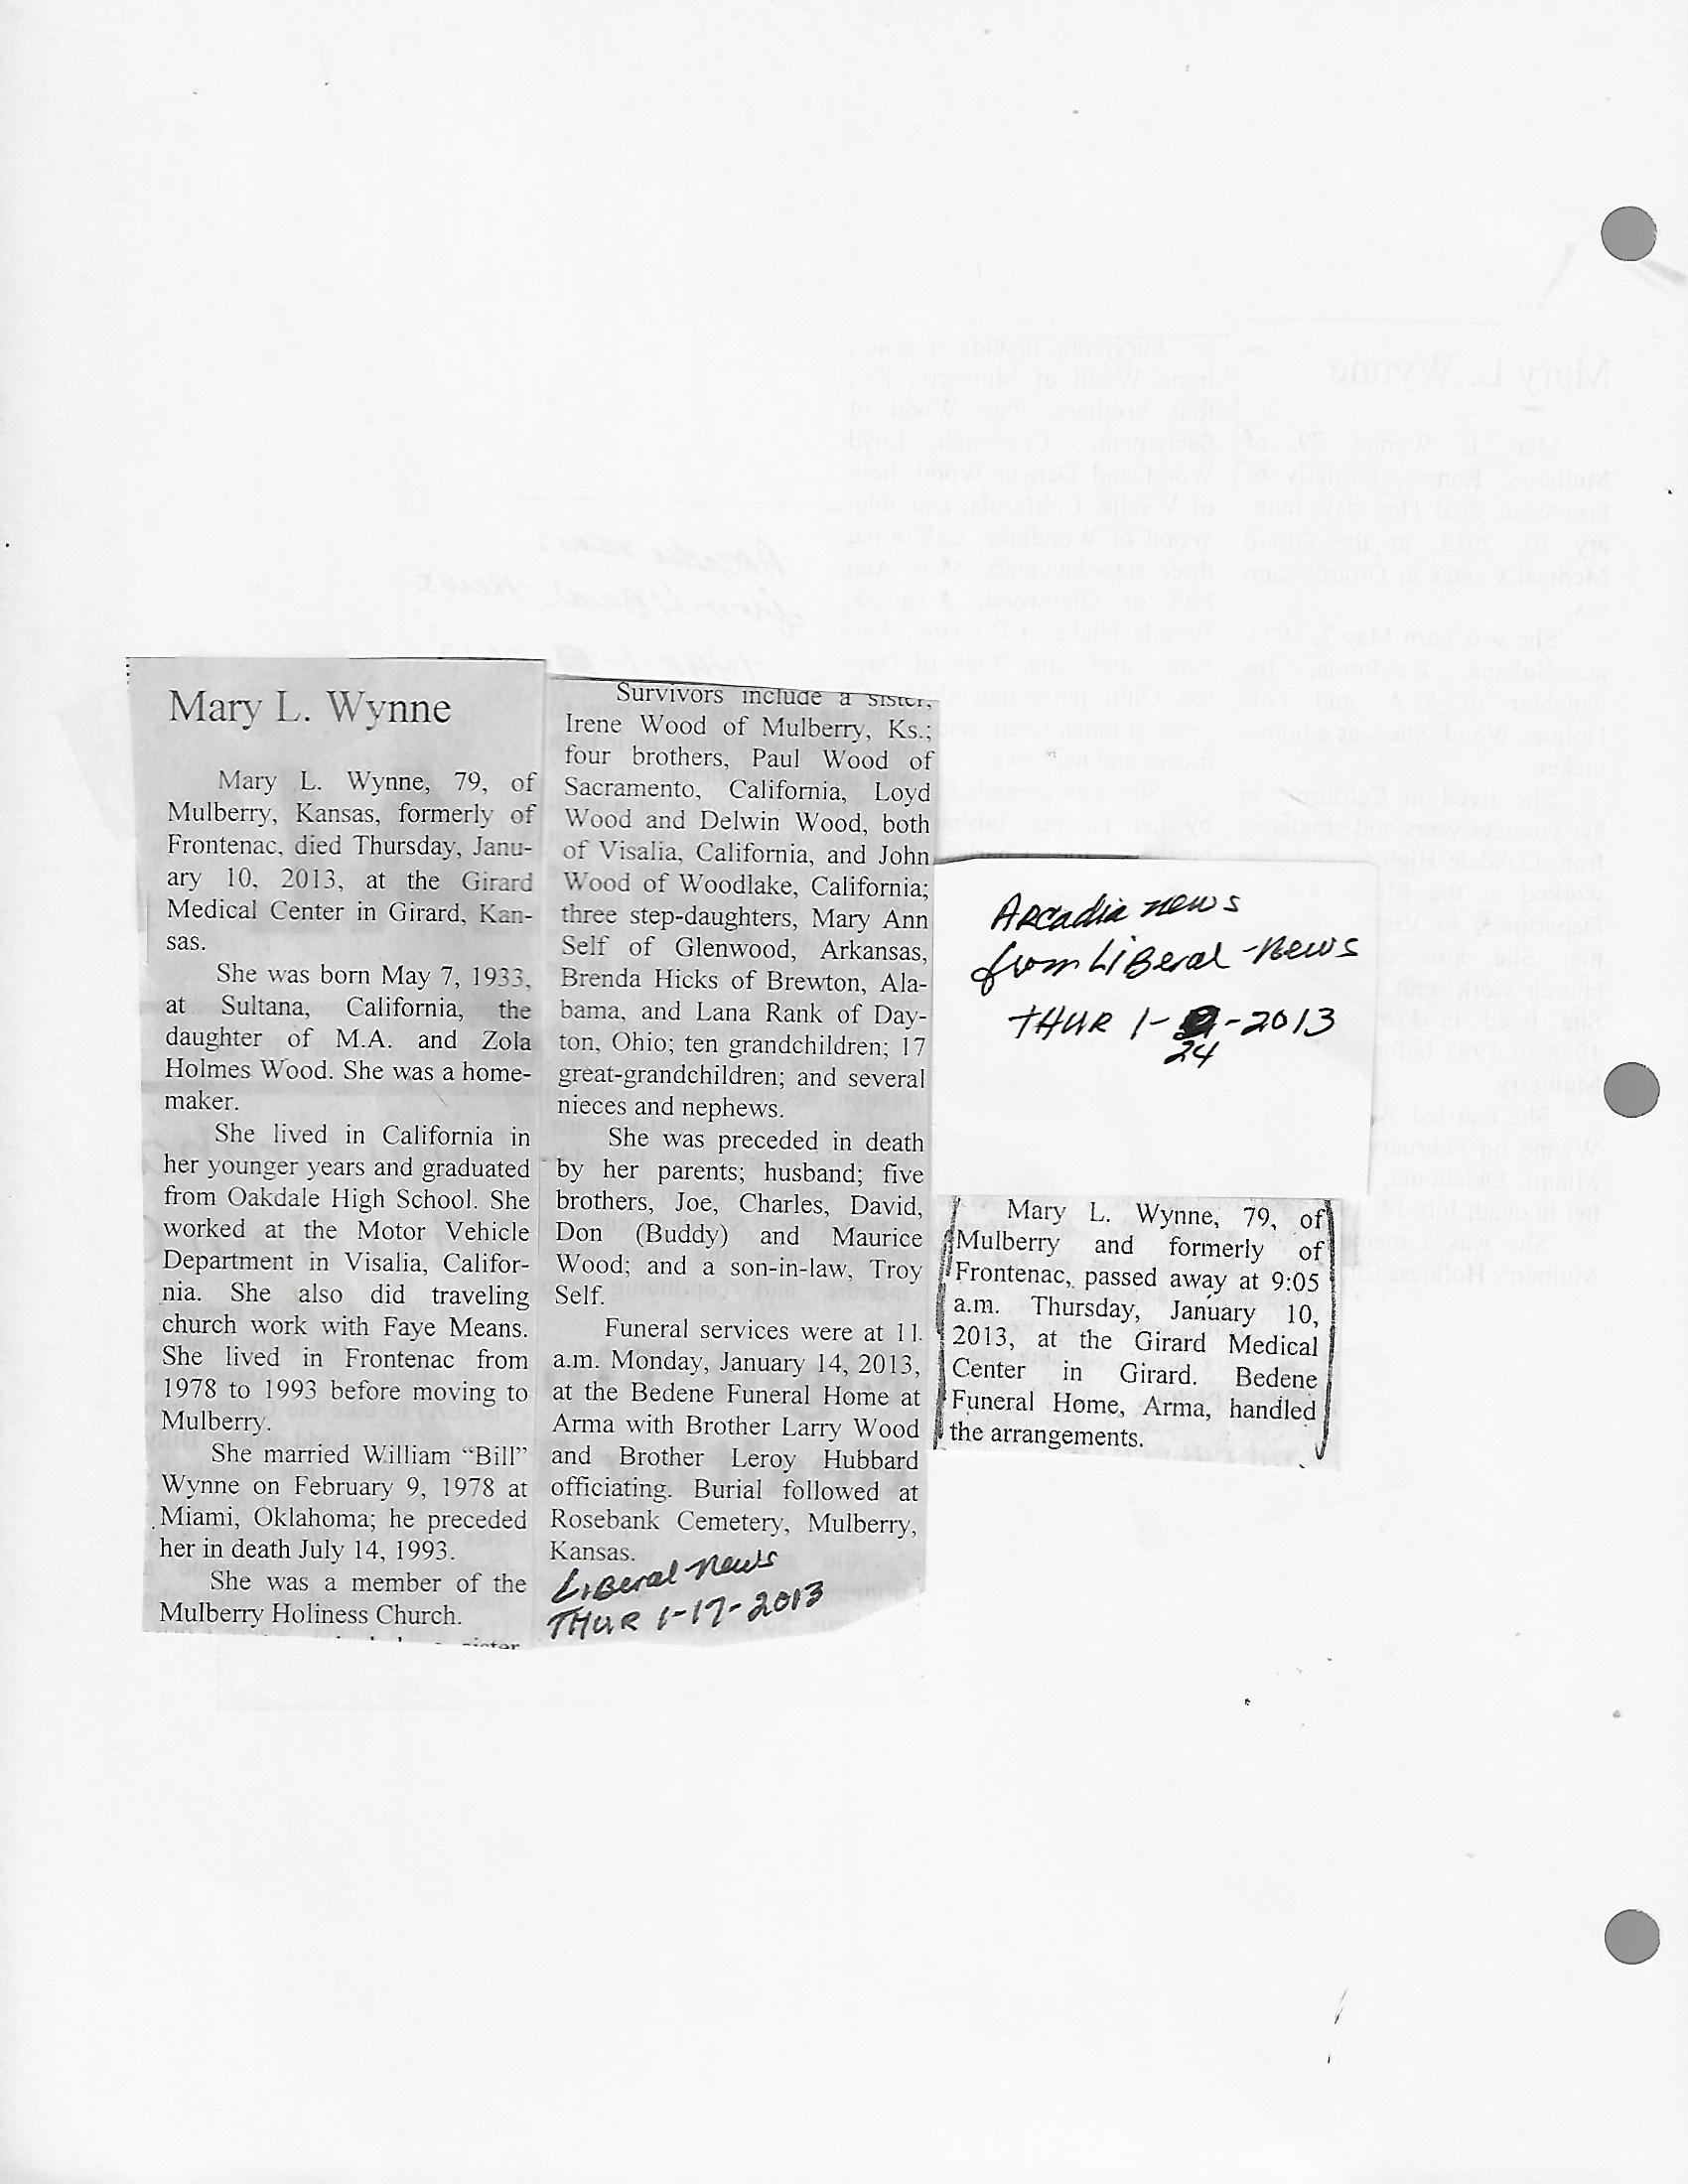 Mary L. Wynne
Mary L. Wynne, 79, of
Mulberry, Kansas, formerly of
Frontenac, died Thursday, Janu-
ary 10, 2013, at the Girard
Medical Center in Girard, Kan-
sas.
She was born May 7, 1933,
at Sultana, California, the
daughter of M.A. and Zola
Holmes Wood. She was a home-
maker.
She lived in California in
her younger years and graduated
from Oakdale High School. She
worked at the Motor Vehicle
Department in Visalia, Califor-
nia. She also did traveling
church work with Faye Means.
She lived in Frontenac from
1978 to 1993 before moving to
Mulberry.
She married William “Bill”
Wynne on February 9, 1978 at
Miami, Oklahoma; he preceded
her in death July 14, 1993.
She was a member of the
Mulberry Holiness Church.
Survivors include a sister,
Irene Wood of Mulberry, Ks.;
four brothers, Paul Wood of
Sacramento, California, Loyd
Wood and Delwin Wood, both
of Visalia, California, and John
Wood of Woodlake, California;
three step-daughters, Mary Ann
Self of Glenwood, Arkansas,
Brenda Hicks of Brewton, Ala-
bama, and Lana Rank of Day-
ton, Ohio; ten grandchildren; 17
great-grandchildren; and several
nieces and nephews.
She was preceded in death
by her parents; husband; five
brothers, Joe, Charles, David,
Don (Buddy) and Maurice
Wood; and a son-in-law, Troy
Self.
Funeral services were at 11
a.m. Monday, January 14, 2013,
at the Bedene Funeral Home at
Arma with Brother Larry Wood
and Brother Leroy Hubbard
officiating. Burial followed at
Rosebank Cemetery, Mulberry,
Kansas.
Liberal News
THUR 1-17-2013
Arcadia news
from Liberal News
THUR 1-24-2013
Mary L. Wynne, 79, of
Mulberry and formerly of
Frontenac, passed away at 9:05
a.m. Thursday, January 10,
2013, at the Girard Medical
Center in Girard. Bedene
Funeral Home, Arma, handled
the arrangements.